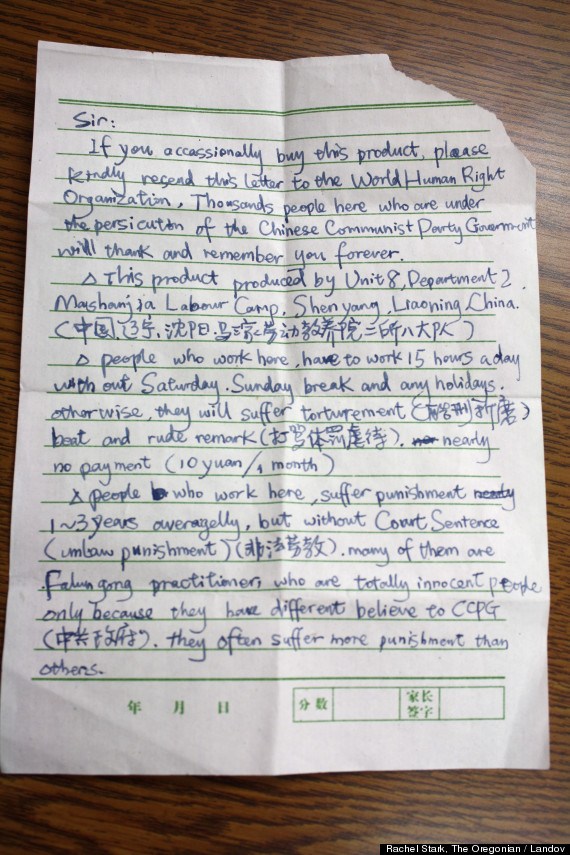 Sir:
If you occassionally buy this product, please
kindly resend this letter to the World Human Right
Organization, Thousands people here who are under
the persicution of the Chinese Communist Party Government
will thank and remember you forever.
△ This product produced by Unit 8, Department 2,
Mashanjia Labour Camp, Shenyang, Liaoning, China.
(中国, 辽宁, 沈阳, 马三家劳动教养院二所八大队)
△ people who work here, have to work 15 hours a day
with out Saturday. Sunday break and any holidays.
otherwise, they will suffer torturement (折磨)
beat and rude remark (打骂体罚虐待). nearly
no payment (10 yuan/1 month)
△ people who work here, suffer punishment
1~3 years averagelly, but without Court Sentence
(unlaw punishment) (非法劳教). many of them are
Falun gong practitioner, who are totally innocent people
only because they have different believe to CCPG
(中共政府). they often suffer more punishment than
others.
年 月 日 分数 家长签字
Rachel Stark, The Oregonian / Landov